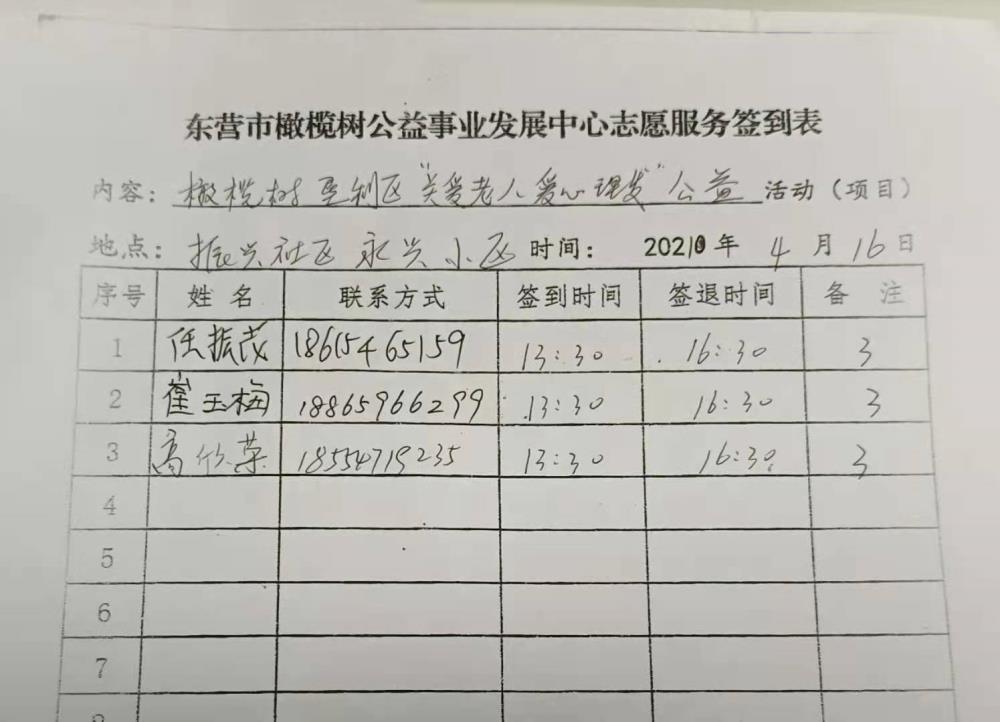 东营市橄榄树公益事业发展中心志愿服务签到表
内容：橄榄树垦利区“关爱老人爱心理发”公益活动（项目）
地点：振兴社区永兴小区 时间：2021年4月16日
序号 姓名 联系方式 签到时间 签退时间 备注
1 任振茂 18615465159 13:30 16:30 3
2 崔玉梅 18865966299 13:30 16:30 3
3 高欣荣 18554719235 13:30 16:30 3
4
5
6
7